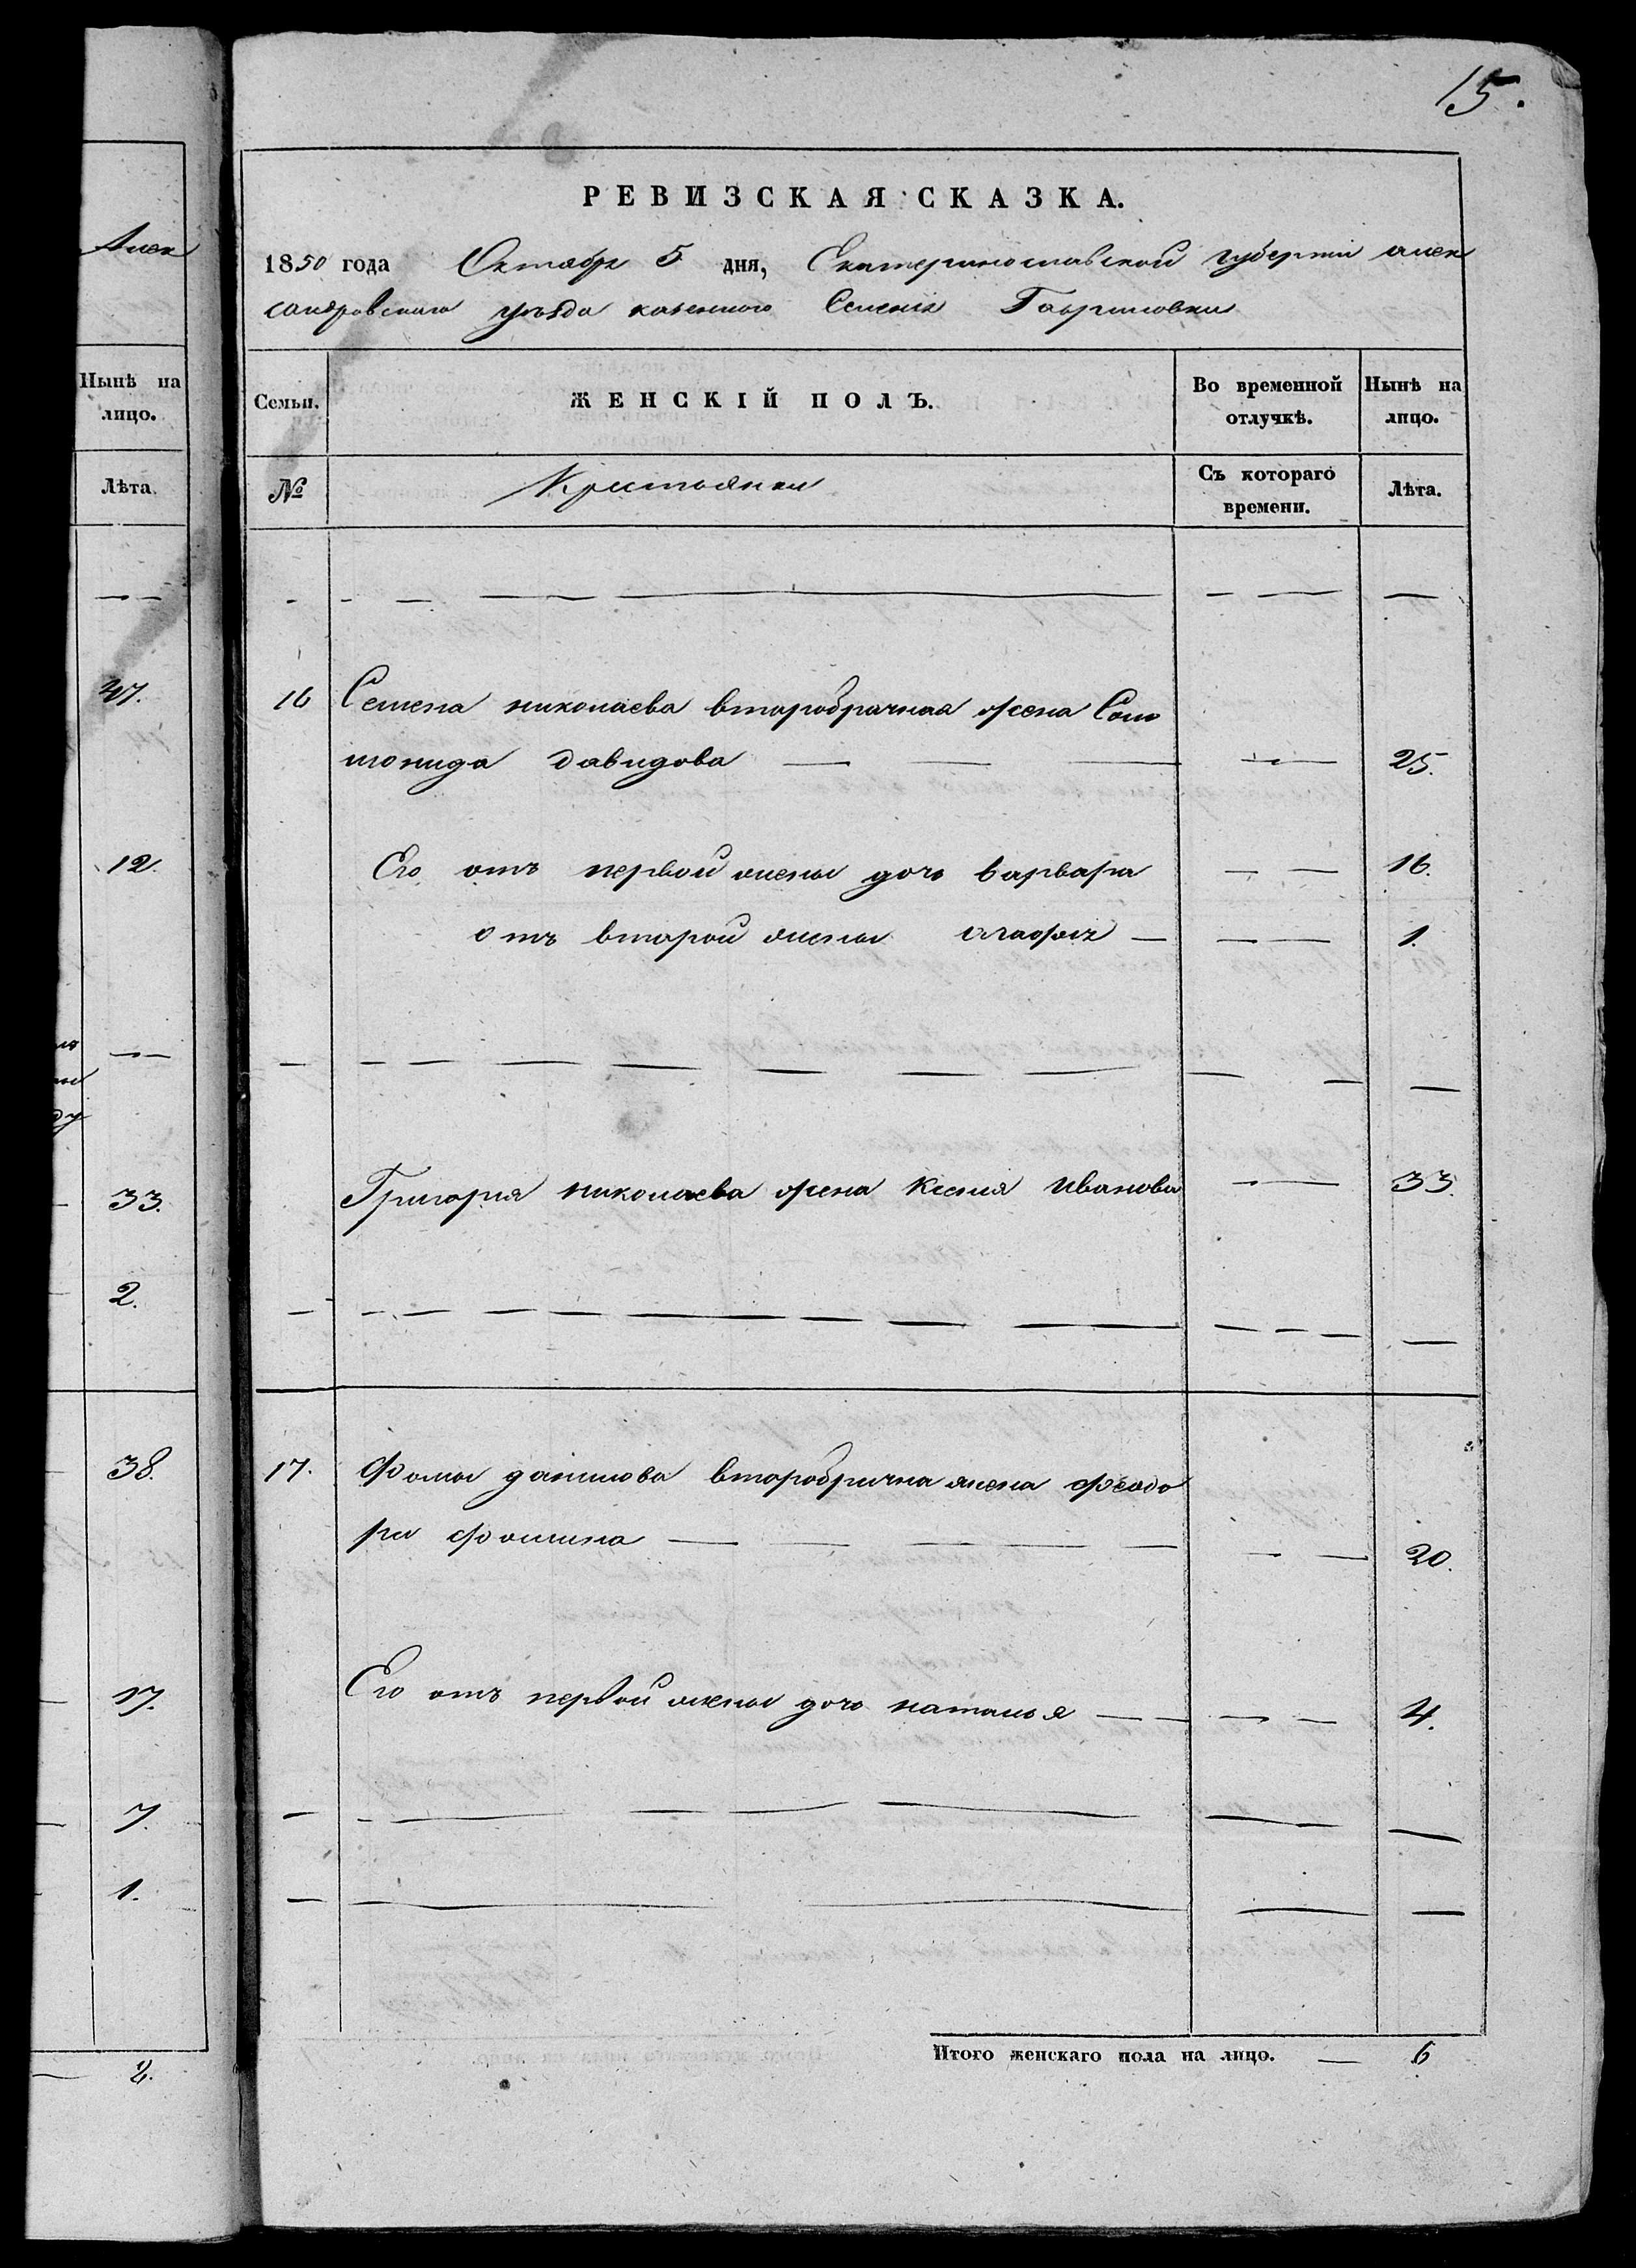 15.
РЕВИЗСКАЯ СКАЗКА.
1850 года Октября 5 дня, Екатеринославской губернии Алек
сандровскаго уѣзда казенного Селенія Гавриловки
Семьи. ЖЕНСКІЙ ПОЛЪ. Во временной отлучкѣ. Нынѣ на лицо.
№ Крестьянки Съ котораго времени. Лѣта.
16 Семена николаева второбрачная жена Соло
монида давидова 25.
Его отъ первой жены дочь варвара 16.
отъ второй жены агафія 1.
Григорія николаева жена Ксенія Иванова 33.
17. Фомы данилова второбрачна жена феодо
ра фомина 20.
Его отъ первой жены дочь наталья 4.
Итого женскаго пола на лицо. 6
Алек
Нынѣ на
лицо.
Лѣта.
47.
12.
33.
2.
38.
17.
7.
1.